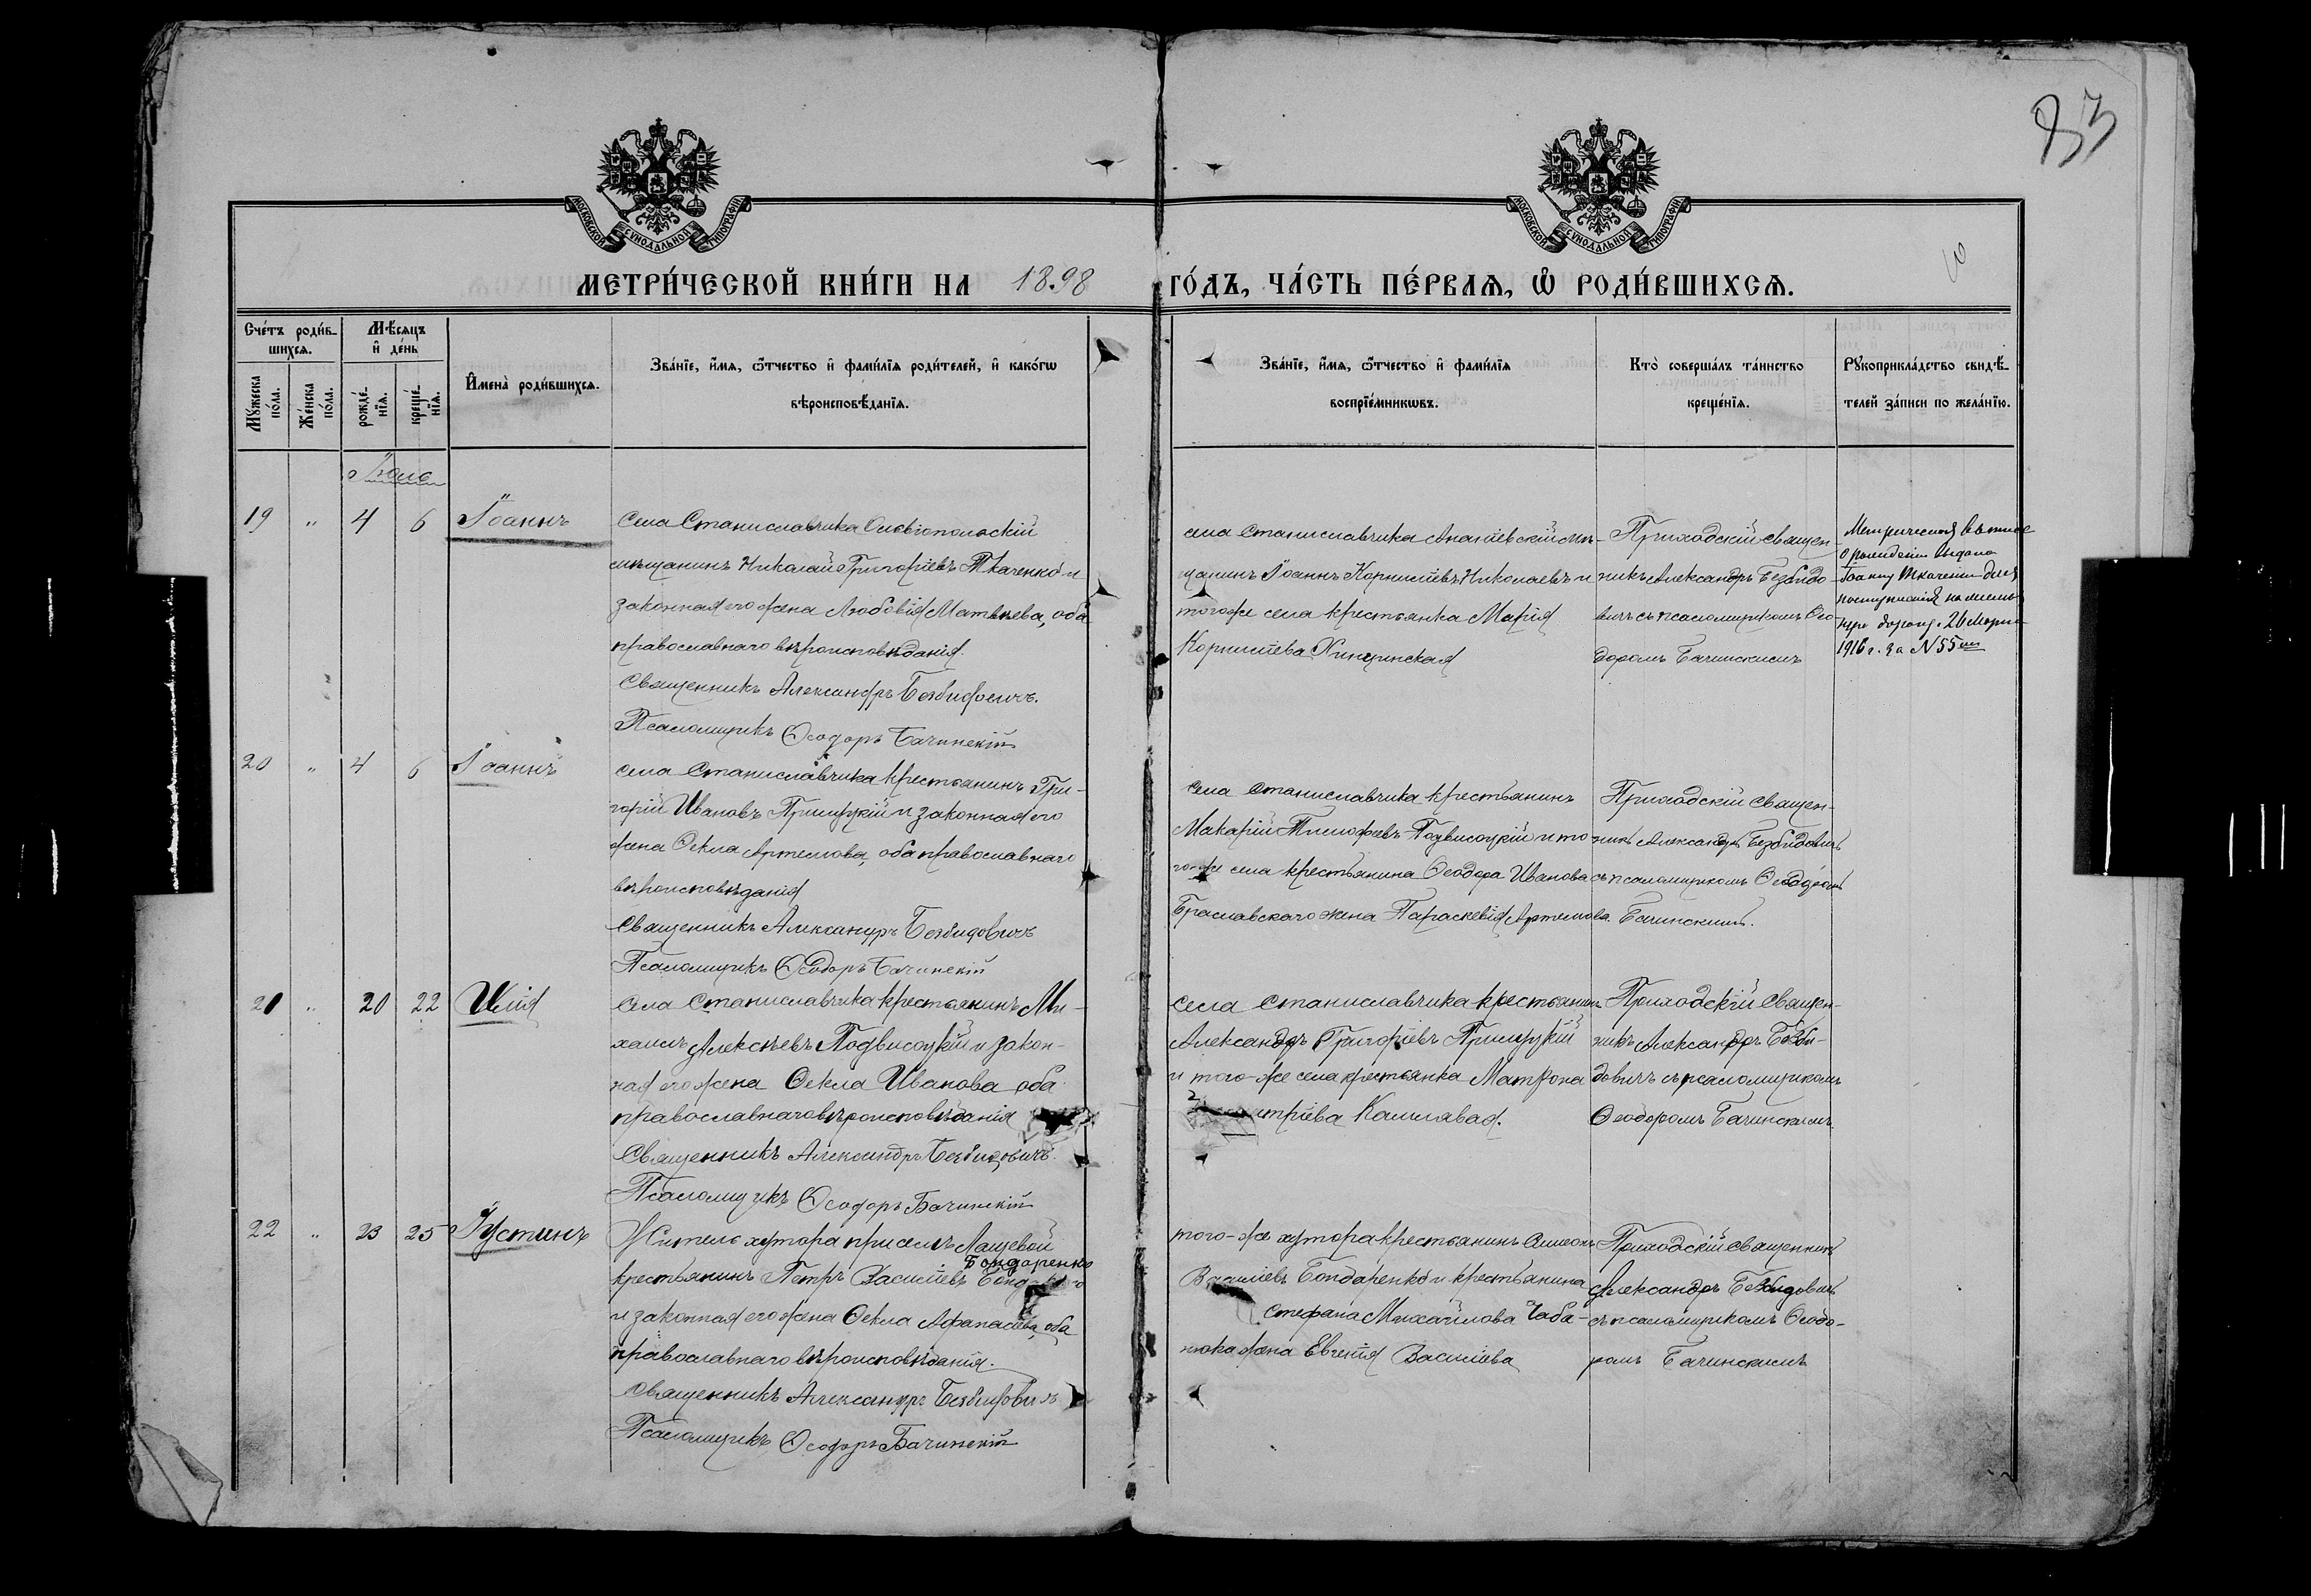 83
МОСКОВСКОЙ СУНОДАЛЬНОЙ ТИПОГРАФІИ
МОСКОВСКОЙ СУНОДАЛЬНОЙ ТИПОГРАФІИ
МЕТРИ́ЧЕСКОЙ КНИ́ГИ НА 1898
ГО́ДЪ, ЧА́СТЬ ПЕ́РВАѦ, Ѡ РОДИ́ВШИХСѦ.
Сче́тъ роди́в-
шихсѧ.
Мѣ́сѧцъ
и҆ де́нь
Мꙋ́жеска
по́ла.
Же́нска
по́ла.
рожде́-
нїѧ.
креще́-
нїѧ.
И҆мена̀ роди́вшихсѧ.
Зва́нїе, и҆́мѧ, ѻ҆́тчество и҆ фами́лїѧ роди́телей, и҆ како́гѡ
вѣроисповѣ́данїѧ.
Зва́нїе, и҆́мѧ, ѻ҆́тчество и҆ фами́лїѧ
воспрїе́мникѡвъ.
Кто̀ соверша́лъ та́инство
креще́нїѧ.
Рꙋкоприкла́дство свидѣ́-
телей за́писи по жела́нїю.
19 " 4 6 Іоаннъ
села Станиславчика Ольвіопольскій
мѣщанинъ Николай Григоріевъ Ткаченко и
законная его жена Любовія Матвѣева, оба
православнаго вѣроисповѣданія.
Священникъ Александръ Безбидовичъ.
Псаломщикъ Ѳеодоръ Бачинскій
села Станиславчика Ананіевскій мѣ-
щанинъ Іоаннъ Корниліевъ Николаевъ и
того же села крестьянка Марія
Корниліева
Приходскій священ-
никъ Александръ Безбидо-
вичъ съ псаломщикомъ Ѳео-
доромъ Бачинскимъ
выдана
Іоанну Ткаченко для
1916 г. за N 55
20 " 4 6 Іоаннъ
села Станиславчика крестьянинъ Гри-
горій Ивановъ Прилуцкій и законная его
жена Ѳекла Артемова, оба православнаго
вѣроисповѣданія
Священникъ Александръ Безбидовичъ
Псаломщикъ Ѳеодоръ Бачинскій
села Станиславчика крестьянинъ
Макарій Тимофеевъ Подвисоцкій и то
гоже села крестьянина Ѳеодора Иванова
Браславскаго жена Параскевія Артемова
Приходскій священ-
никъ Александръ Безбидовичъ
съ псаломщикомъ Ѳеодоромъ
Бачинскимъ.
21 " 20 22 Илія
села Станиславчика крестьянинъ Ми-
хаилъ Алексѣевъ Подвисоцкій и закон-
ная его жена Ѳекла Иванова оба
православнаго вѣроисповѣданія
Священникъ Александръ Безбидовичъ.
Псаломщикъ Ѳеодоръ Бачинскій
села Станиславчика крестьянинъ
Александръ Григоріевъ Прилуцкій
и того-же села крестьянка Матрона
итріева
Приходскій священ-
никъ Александръ Безби-
довичъ съ псаломщикомъ
Ѳеодоромъ Бачинскимъ.
22 " 23 25 Іустинъ
Житель хутора при селѣ Лащевой
Бондаренко
крестьянинъ Петръ Василіевъ
и законная его жена Ѳекла Афанасіева, оба
православнаго вѣроисповѣданія.
Священникъ Александръ Безбидовичъ
Псаломщикъ Ѳеодоръ Бачинскій
того-же хутора крестьянинъ Симеонъ
Василіевъ Бондаренко и крестьянина
Стефана Михайлова Чаба-
нюка жена Евгенія Василіева
Приходскій священникъ
Александръ Безбидовичъ
съ псаломщикомъ Ѳеодо-
ромъ Бачинскимъ